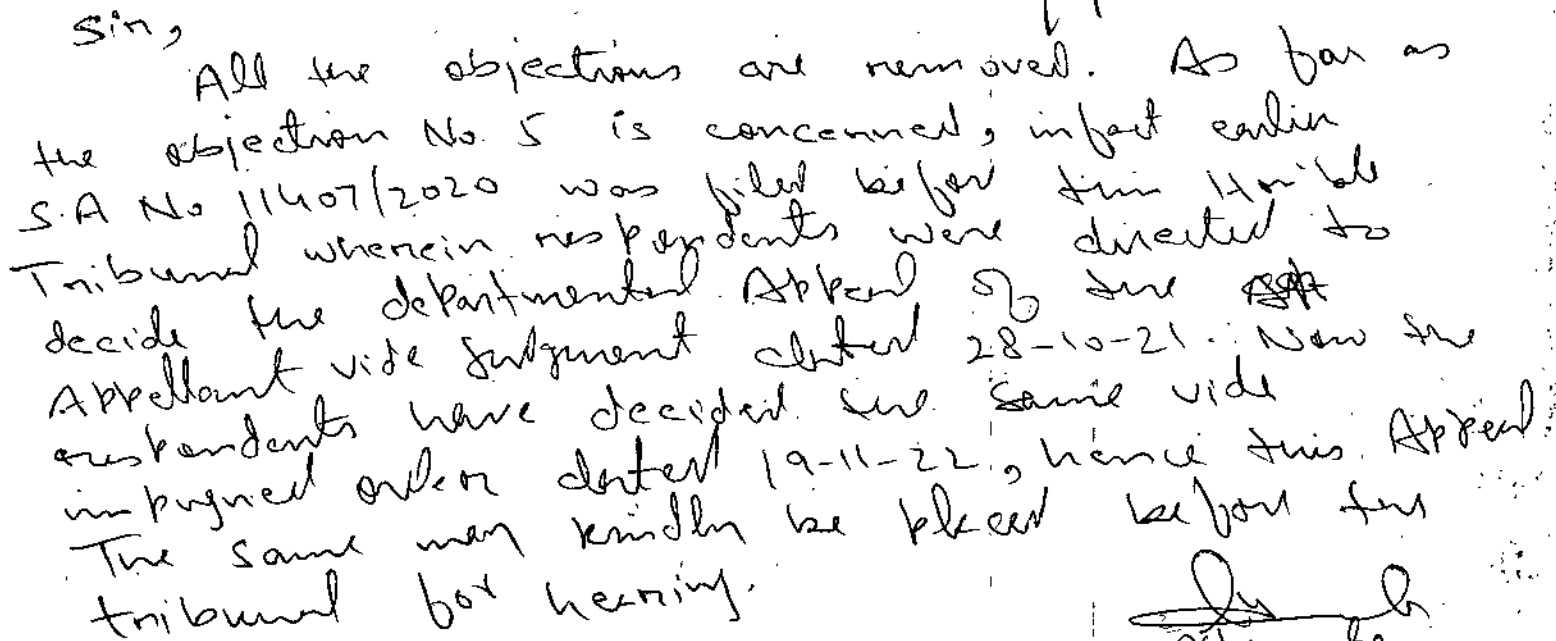 Sir,
All the objections are removed. As far as
the objection No. 5 is concerned, infact earlier
S.A No 11407/2020 was filed before this Hon'ble
Tribunal wherein respondents were directed to
decide the departmental Appeal of the
Appellant vide Judgment dated 28-10-21. Now the
respondents have decided the same vide
impugned order dated 19-11-22, hence this Appeal
The same may kindly be placed before the
tribunal for hearing.